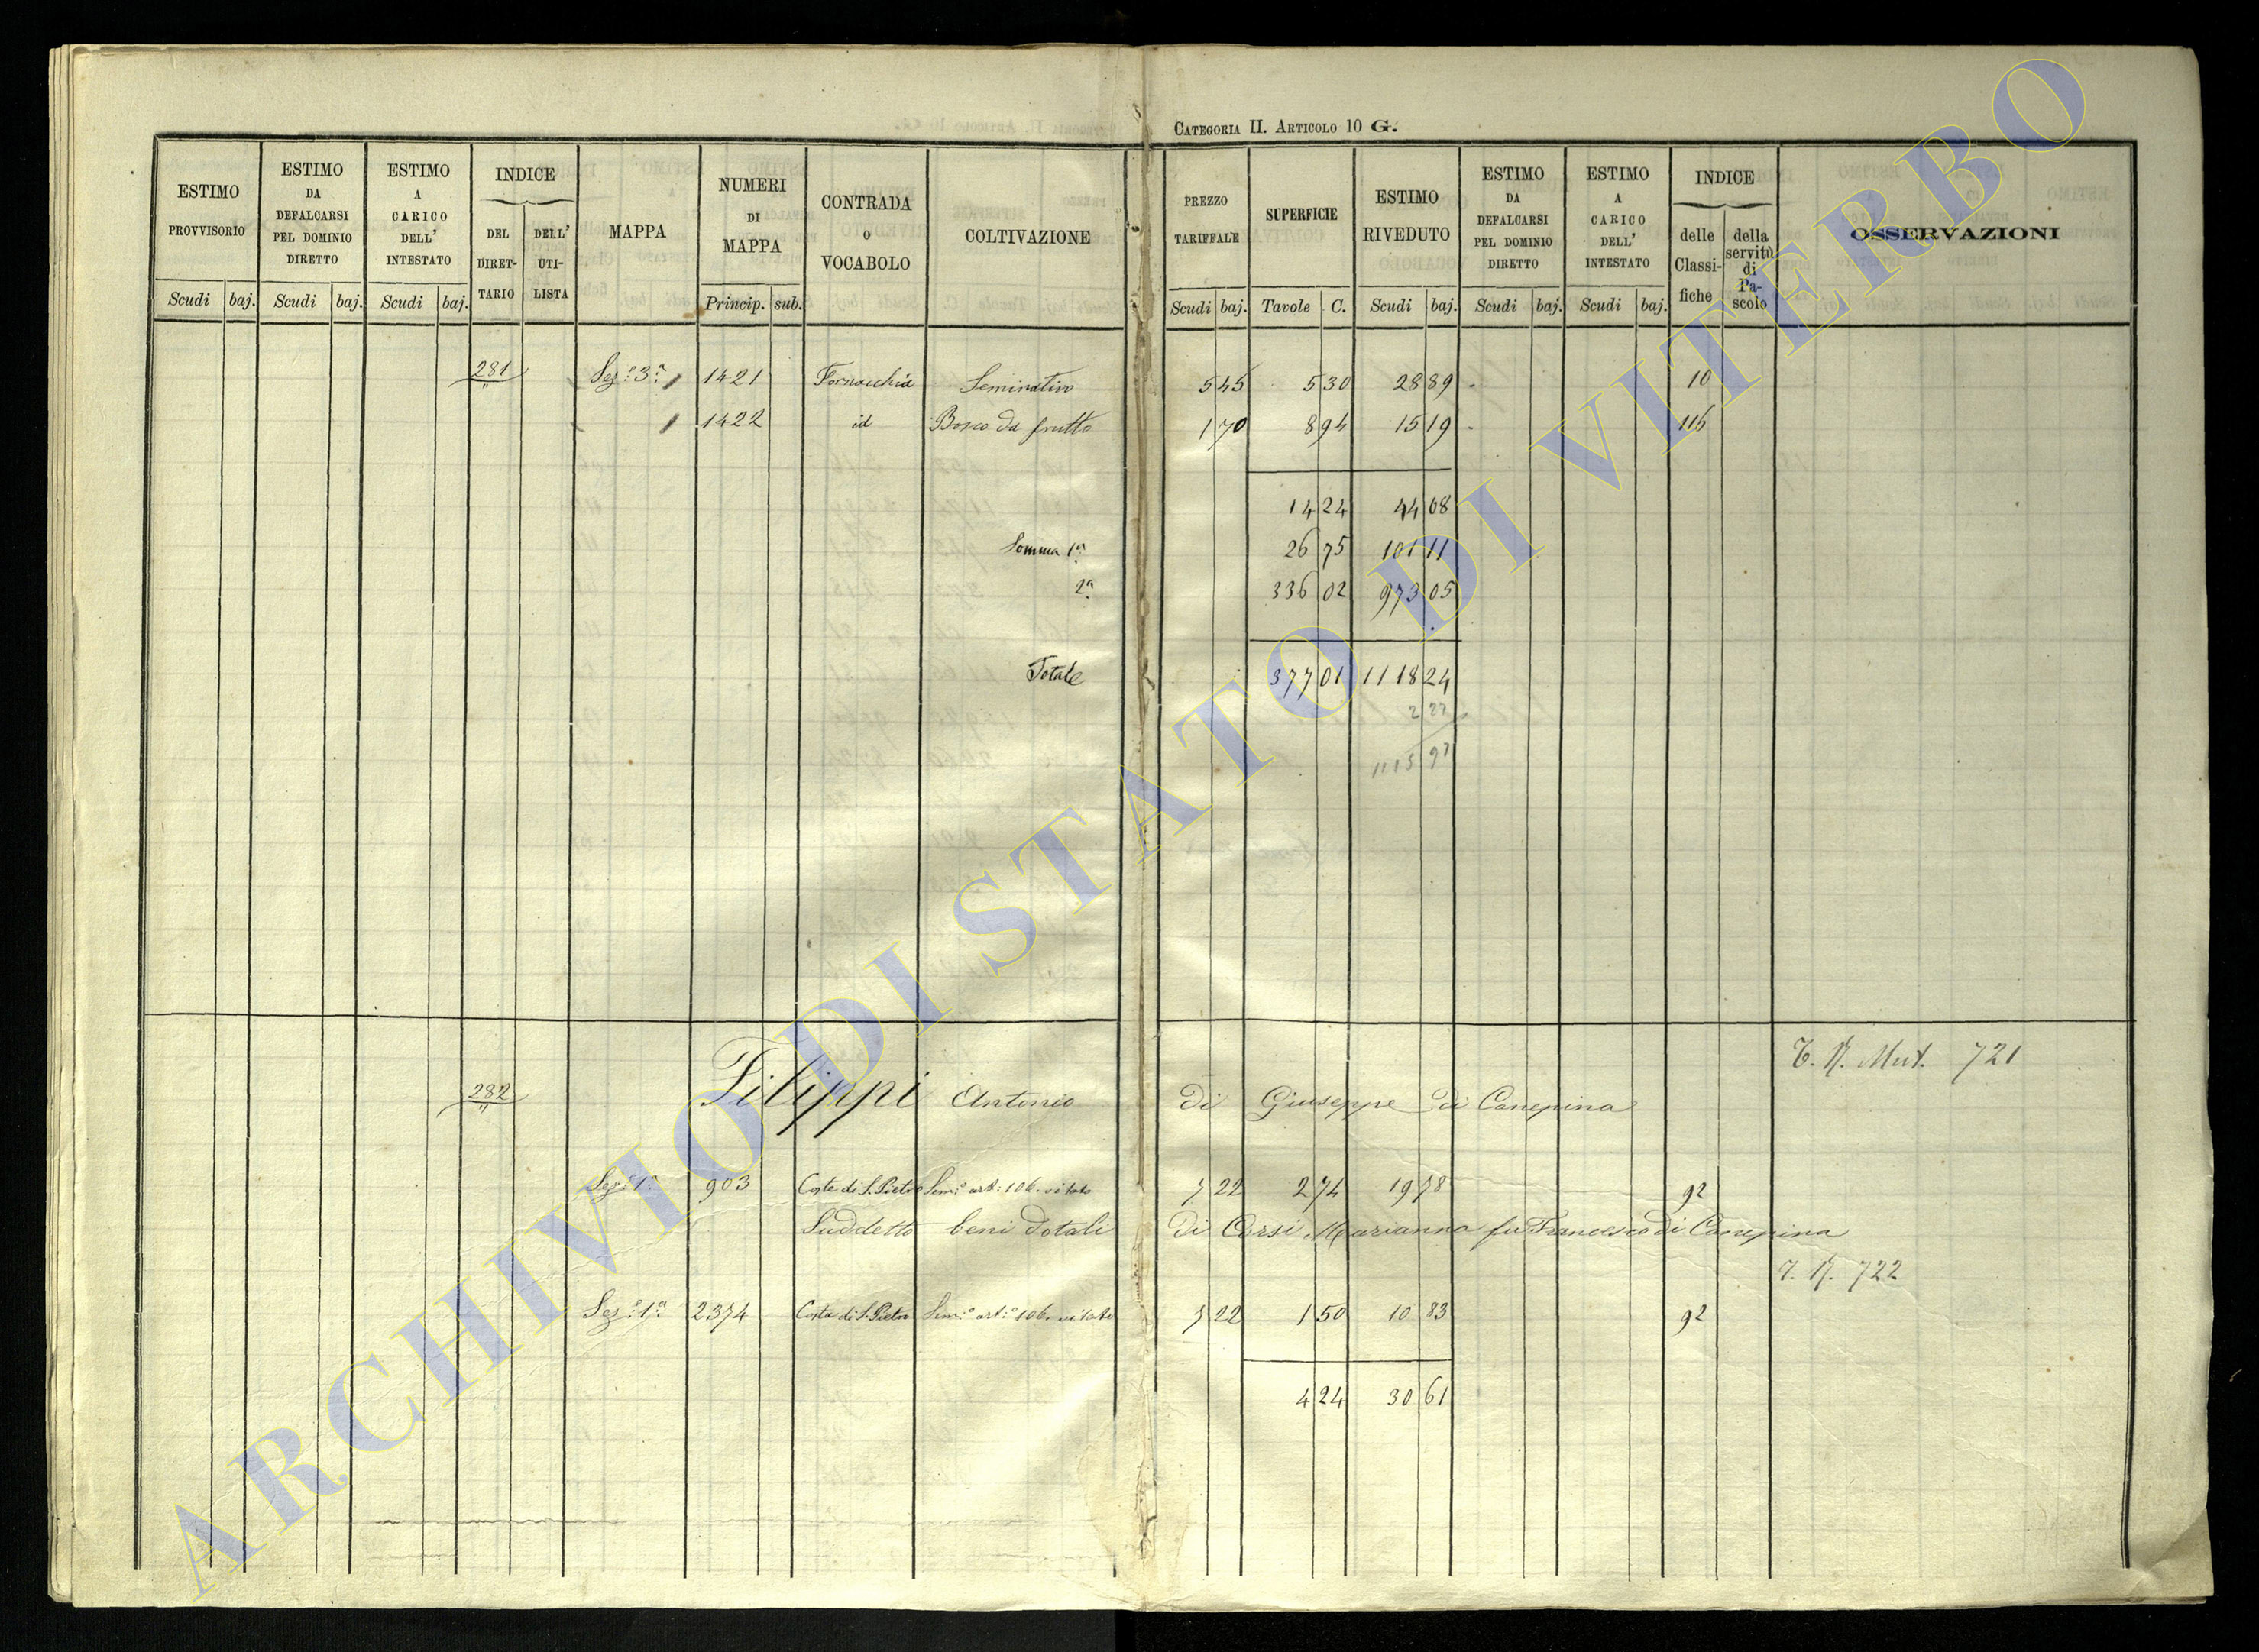 CATEGORIA II. ARTICOLO 10 G.
ESTIMO PROVVISORIO Scudi baj.
ESTIMO DA DEFALCARSI PEL DOMINIO DIRETTO Scudi baj.
ESTIMO A CARICO DELL' INTESTATO Scudi baj.
INDICE DEL DIRETTARIO DELL' UTILISTA
MAPPA
NUMERI DI MAPPA Princip. sub.
CONTRADA O VOCABOLO
COLTIVAZIONE
PREZZO TARIFFALE Scudi baj.
SUPERFICIE Tavole C.
ESTIMO RIVEDUTO Scudi baj.
ESTIMO DA DEFALCARSI PEL DOMINIO DIRETTO Scudi baj.
ESTIMO A CARICO DELL' INTESTATO Scudi baj.
INDICE delle Classifiche della servitù di Pascolo
OSSERVAZIONI
281 Sez.e 3a 1421 Fornacchia Seminativo 5 45 5 30 28 89 10
1422 id Bosco da frutto 1 70 8 94 15 19 116
14 24 44 08
Somma 1a 26 75 101 11
2a 336 02 973 05
Totale 377 01 1118 24
2 27
1115 97
T. N. Mut. 721
282 Filippi Antonio di Giuseppe di Canepina
Sez.e 1a 903 Coste di S. Pietro Sem.o art: 106. vitato 7 22 2 74 19 78 92
Suddetto beni dotali di Corsi Marianna fu Francesco di Canepina
T. N. 722
Sez.e 1a 2374 Costa di S. Pietro Sem.o art.o 106. vitato 7 22 1 50 10 83 92
4 24 30 61
ARCHIVIO DI STATO DI VITERBO